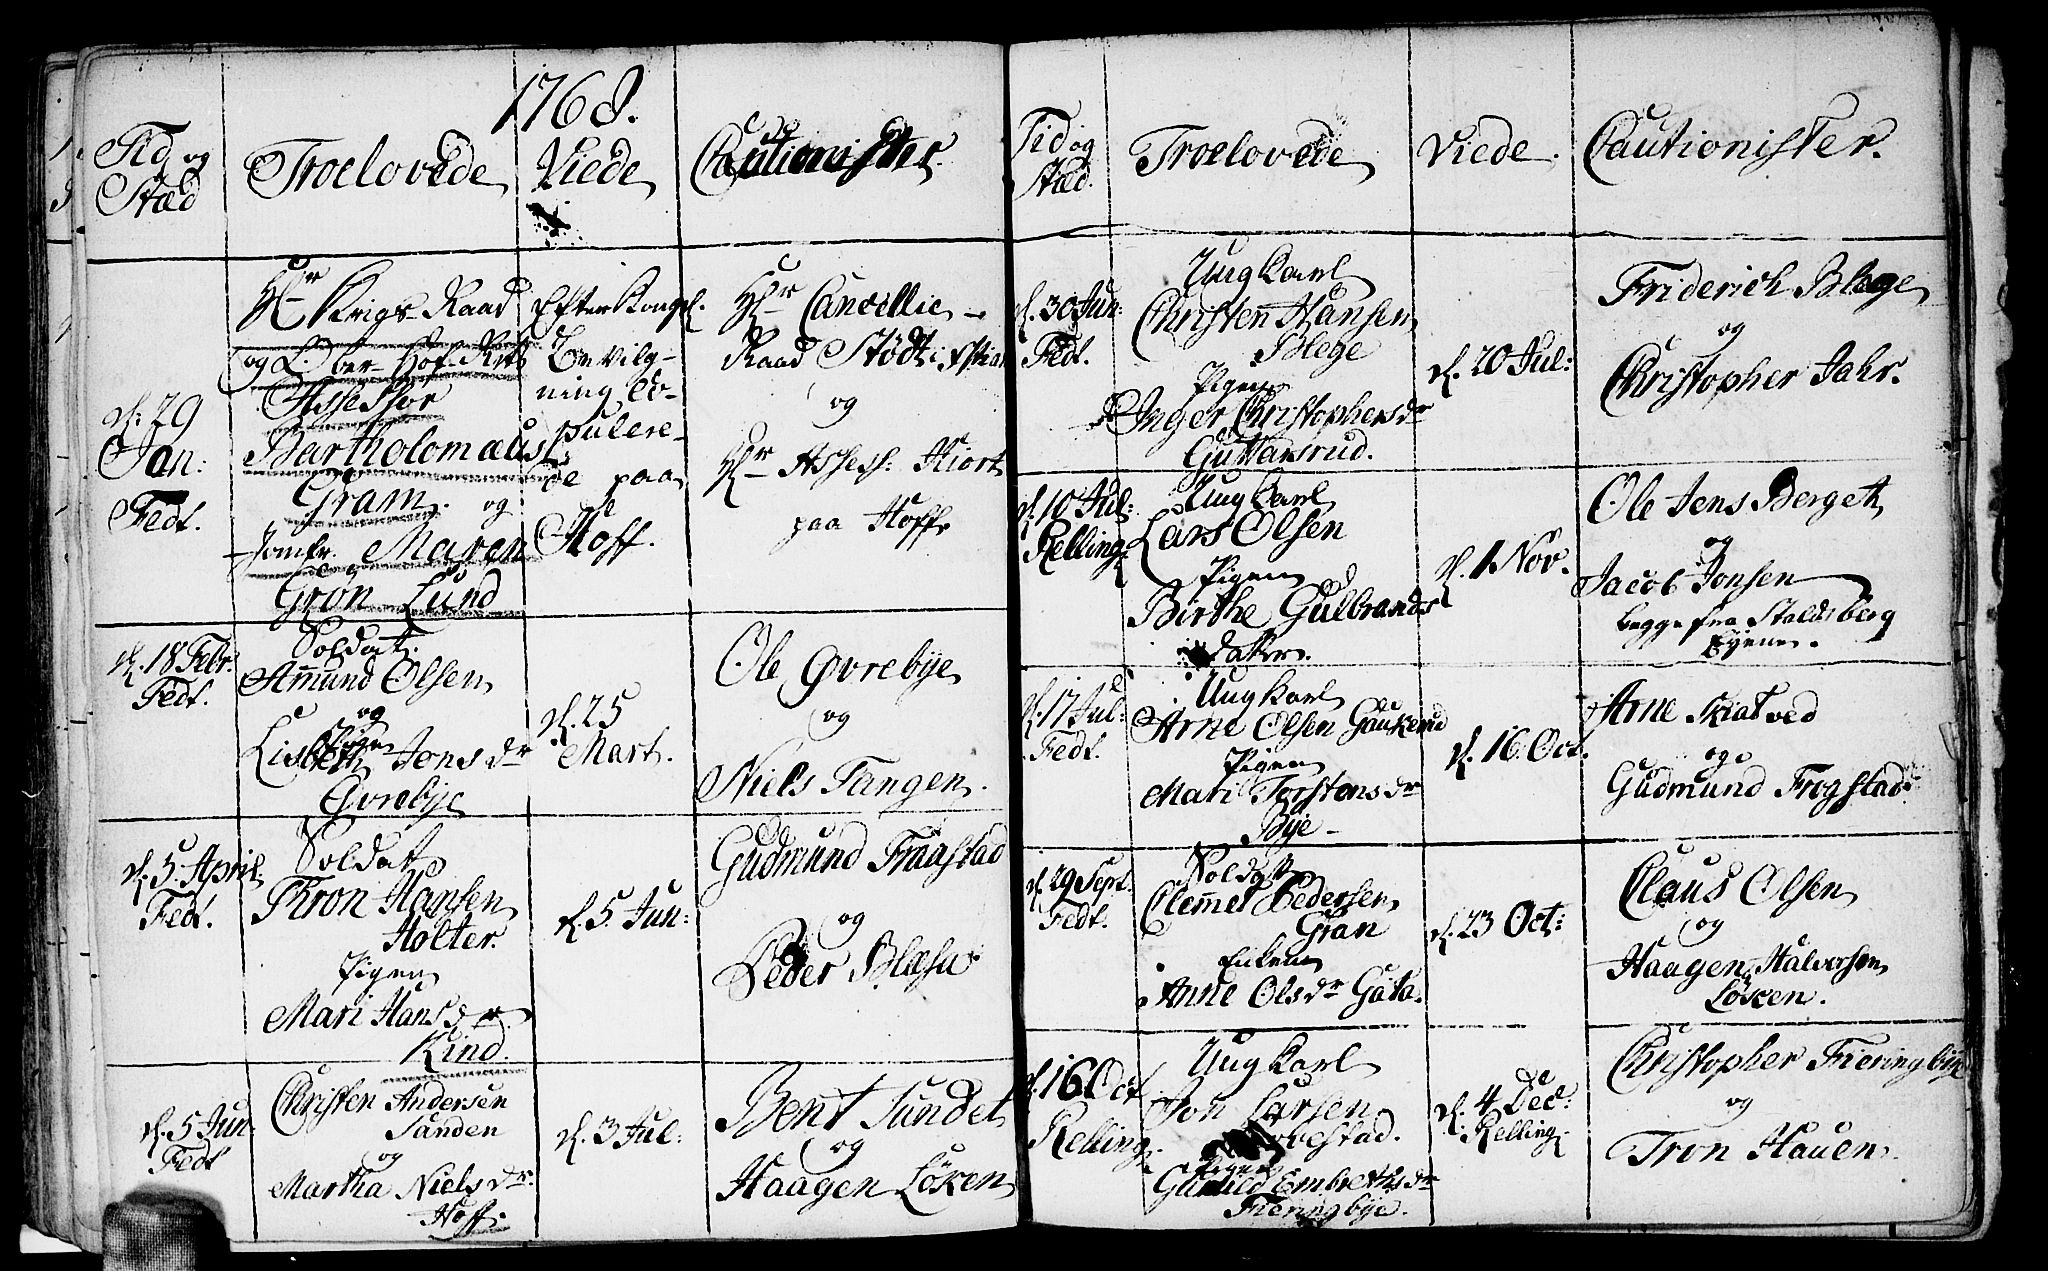 1768.
Tid og
Stæd
Troelovede
Viede
Cautionister.
d. 29
Jan:
Fedt.
Hr Krigs-Raad
og Ober-Hof-Rets
Assessor
Bartholomæus
Gram. og
Jomfr. Maren
Grön Lund
Efter Kongl.
Bevilg-
ning co-
pulere-
de paa
Hoff.
Hr Cancellie-
Raad Stödt i
og
Hr Assess: Hiort
paa Hoff
d. 18 Febr:
Fedt.
Soldat.
Amund Olsen
og
Pigen
Lisbeth Jens dr
Øvrebye
d. 25
Mart.
Ole Øvrebye
og
Niels Tangen.
d. 5. April
Fedt.
Soldat
Thron Hansen
Holter.
Pigen
Mari Hans dr
Kind.
d. 5. Jun:
Gudmund Fraastad
og
Peder Blæsa
d. 5 Jun:
Fedt
Christen Andersen
Sanden
og
Martha Niels dr.
Hoff.
d. 3 Jul:
Bent Sundet
og
Haagen Löken
Tid og
Stæd.
Troelovede
Viede.
Cautionister.
d. 30 Jun:
Fedt.
Ung Karl
Christen Hansen
Blege
Pigen
Inger Christophers dr
Guttansrud.
d. 20 Jul:
Friderich Blege
og
Christopher Jahr.
d. 10 Jul:
Relling
Ung Karl
Lars Olsen
Pigen
Birthe Gulbrands
datter.
d. 1 Nov.
Ole Jens Berget
og
Jacob Jonsen
begge fra Staldsberg
Eyene.
d. 17 Jul:
Fedt.
Ung Karl
Arne Olsen Gaukerud
Pigen
Mari Torstens dr
Bye-
d. 16. Oct.
Arne Skiatved
og
Gudmund Frogstad
d. 29 Sept.
Fedt.
Soldat
Clemmet Pedersen
Gran
Enken
Anne Ols dr Gata.
d. 23 Oct:
Claus Olsen
og
Haagen Halversen
Lösen.
d. 16 Oct
Relling
Ung Karl
Jon Larsen
Pigen
Gunild Embreths dr
Fieringbye.
d. 4 Dec:
Relling
Christopher Fieringbye
og
Tron Hauen.